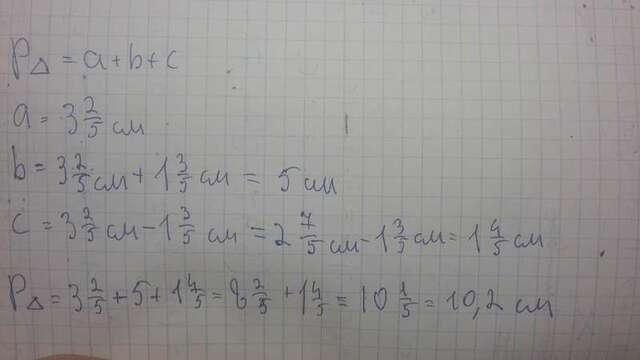 P△ = a + b + c
a = 3 2/5 см
b = 3 2/5 см + 1 3/5 см = 5 см
c = 3 2/5 см - 1 3/5 см = 2 7/5 см - 1 3/5 см = 1 4/5 см
P△ = 3 2/5 + 5 + 1 4/5 = 8 2/5 + 1 4/5 = 10 1/5 = 10,2 см